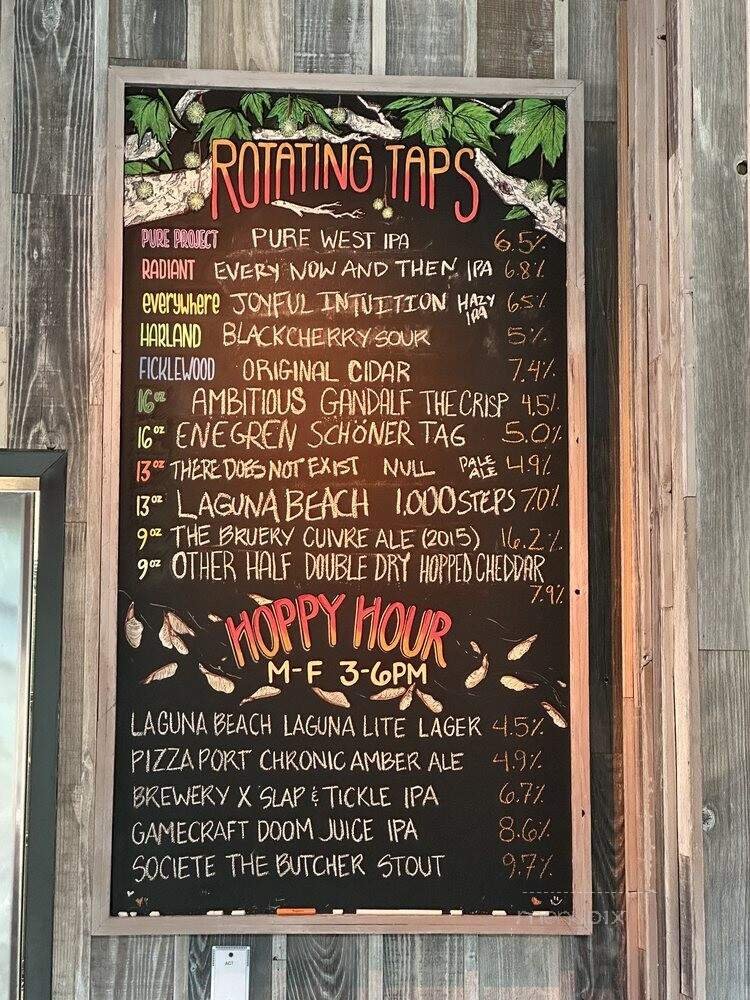 ROTATING TAPS
PURE PROJECT PURE WEST IPA 6.5%
RADIANT EVERY NOW AND THEN IPA 6.8%
everywhere JOYFUL INTUITION HAZY IPA 6.5%
HARLAND BLACK CHERRY SOUR 5%
FICKLEWOOD ORIGINAL CIDAR 7.4%
16oz AMBITIOUS GANDALF THE CRISP 4.5%
16oz ENEGREN SCHÖNER TAG 5.0%
13oz THERE DOES NOT EXIST NULL PALE ALE 4.9%
13oz LAGUNA BEACH 1,000 STEPS 7.0%
9oz THE BRUERY CUIVRE ALE (2015) 16.2%
9oz OTHER HALF DOUBLE DRY HOPPED CHEDDAR
7.9%
HOPPY HOUR
M-F 3-6PM
LAGUNA BEACH LAGUNA LITE LAGER 4.5%
PIZZA PORT CHRONIC AMBER ALE 4.9%
BREWERY X SLAP & TICKLE IPA 6.7%
GAMECRAFT DOOM JUICE IPA 8.6%
SOCIETE THE BUTCHER STOUT 9.7%